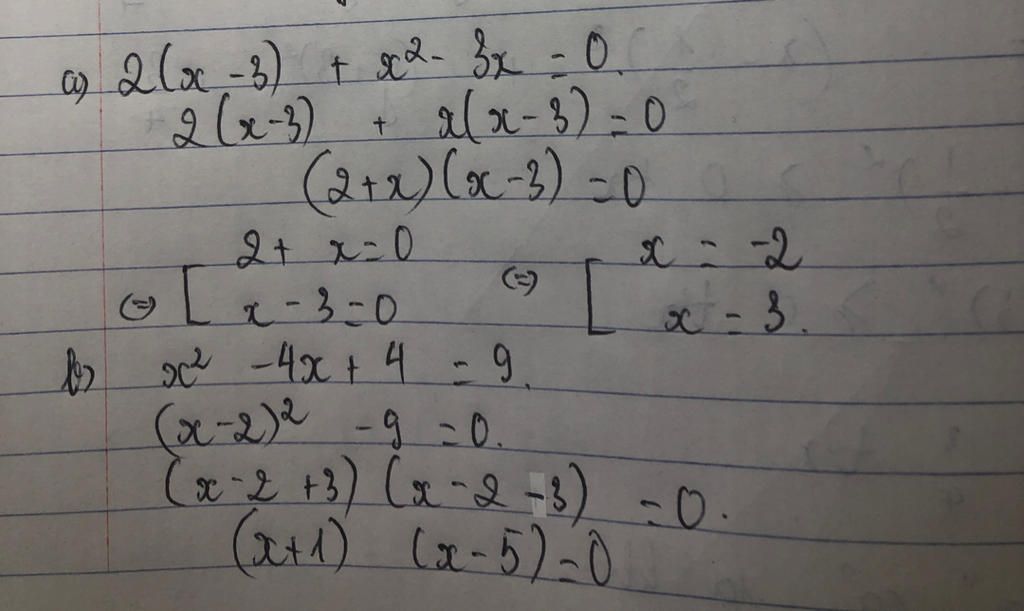 a) 2(x-3) + x² - 3x = 0.
2(x-3) + x(x-3) = 0
(2+x)(x-3) = 0
(=) [ 2 + x = 0 (=) [ x = -2
x - 3 = 0 x = 3.
b) x² - 4x + 4 = 9.
(x-2)² - 9 = 0.
(x-2+3)(x-2-3) = 0.
(x+1) (x-5) = 0